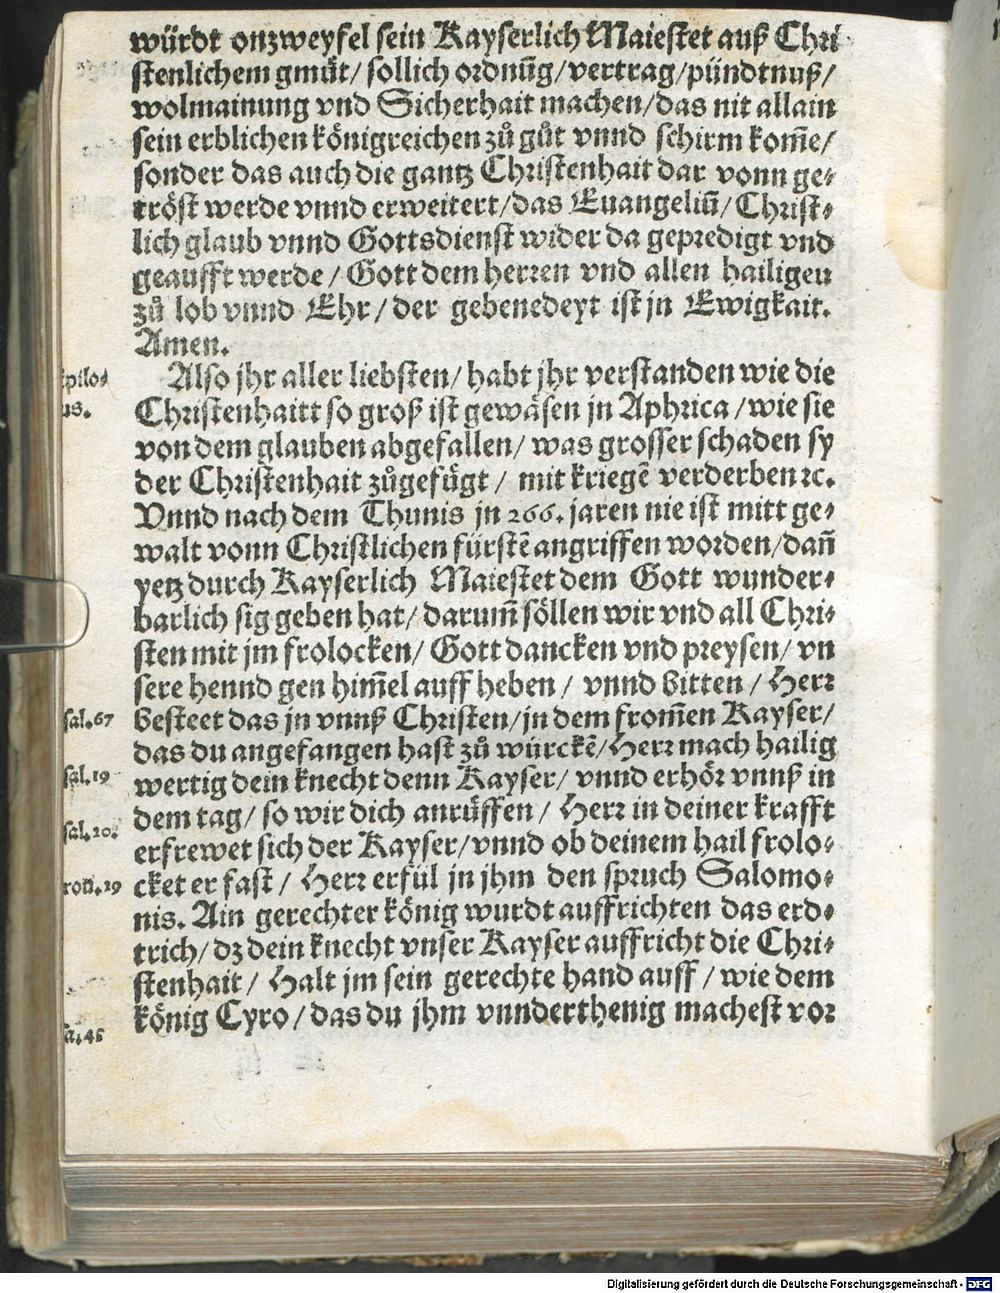 würdt onzweyfel sein Kayserlich Maiestet auß Chri
stenlichem gmüt/ sollich ordnūg/vertrag/pündtnuß/
wolmainung vnd Sicherhait machen/das nit allain
sein erblichen königreichen zů gůt vnnd schirm kom̄e/
sonder das auch die gantz Christenhait dar vonn ge⸗
tröst werde vnnd erweitert/das Euangeliū/Christ⸗
lich glaub vnnd Gottsdienst wider da gepredigt vnd
geaufft werde/Gott dem herren vnd allen hailigen
zů lob vnnd Ehr/der gebenedeyt ist jn Ewigkait.
Amen.
pilo⸗
us.
Also jhr aller liebsten/habt jhr verstanden wie die
Christenhaitt so groß ist gewäsen jn Aphrica/wie sie
von dem glauben abgefallen/was grosser schaden sy
der Christenhait zůgefügt/mit kriegē verderben ꝛc.
Vnnd nach dem Thunis jn 266. jaren nie ist mitt ge⸗
walt vonn Christlichen fürstē angriffen worden/dan̄
yetz durch Kayserlich Maiestet dem Gott wunder⸗
barlich sig geben hat/darum̄ söllen wir vnd all Chri⸗
sten mit jm frolocken/Gott dancken vnd preysen/vn
sere hennd gen him̄el auff heben/vnnd bitten/Herr
sal.67
besteet das jn vnnß Christen/jn dem from̄en Kayser/
das du angefangen hast zů würckē/Herr mach hailig
sal.19
wertig dein knecht denn Kayser/vnnd erhör vnnß in
dem tag/so wir dich anrüffen/Herr in deiner krafft
sal.20.
erfrewet sich der Kayser/vnnd ob deinem hail frolo⸗
ron̄.19
cket er fast/Herr erfül jn jhm den spruch Salomo⸗
nis. Ain gerechter könig wurdt auffrichten das erd⸗
trich/dz dein knecht vnser Kayser auffricht die Chri⸗
stenhait/Halt jm sein gerechte hand auff/wie dem
könig Cyro/das du jhm vnnderthenig machest vor
a.45
Digitalisierung gefördert durch die Deutsche Forschungsgemeinschaft - DFG